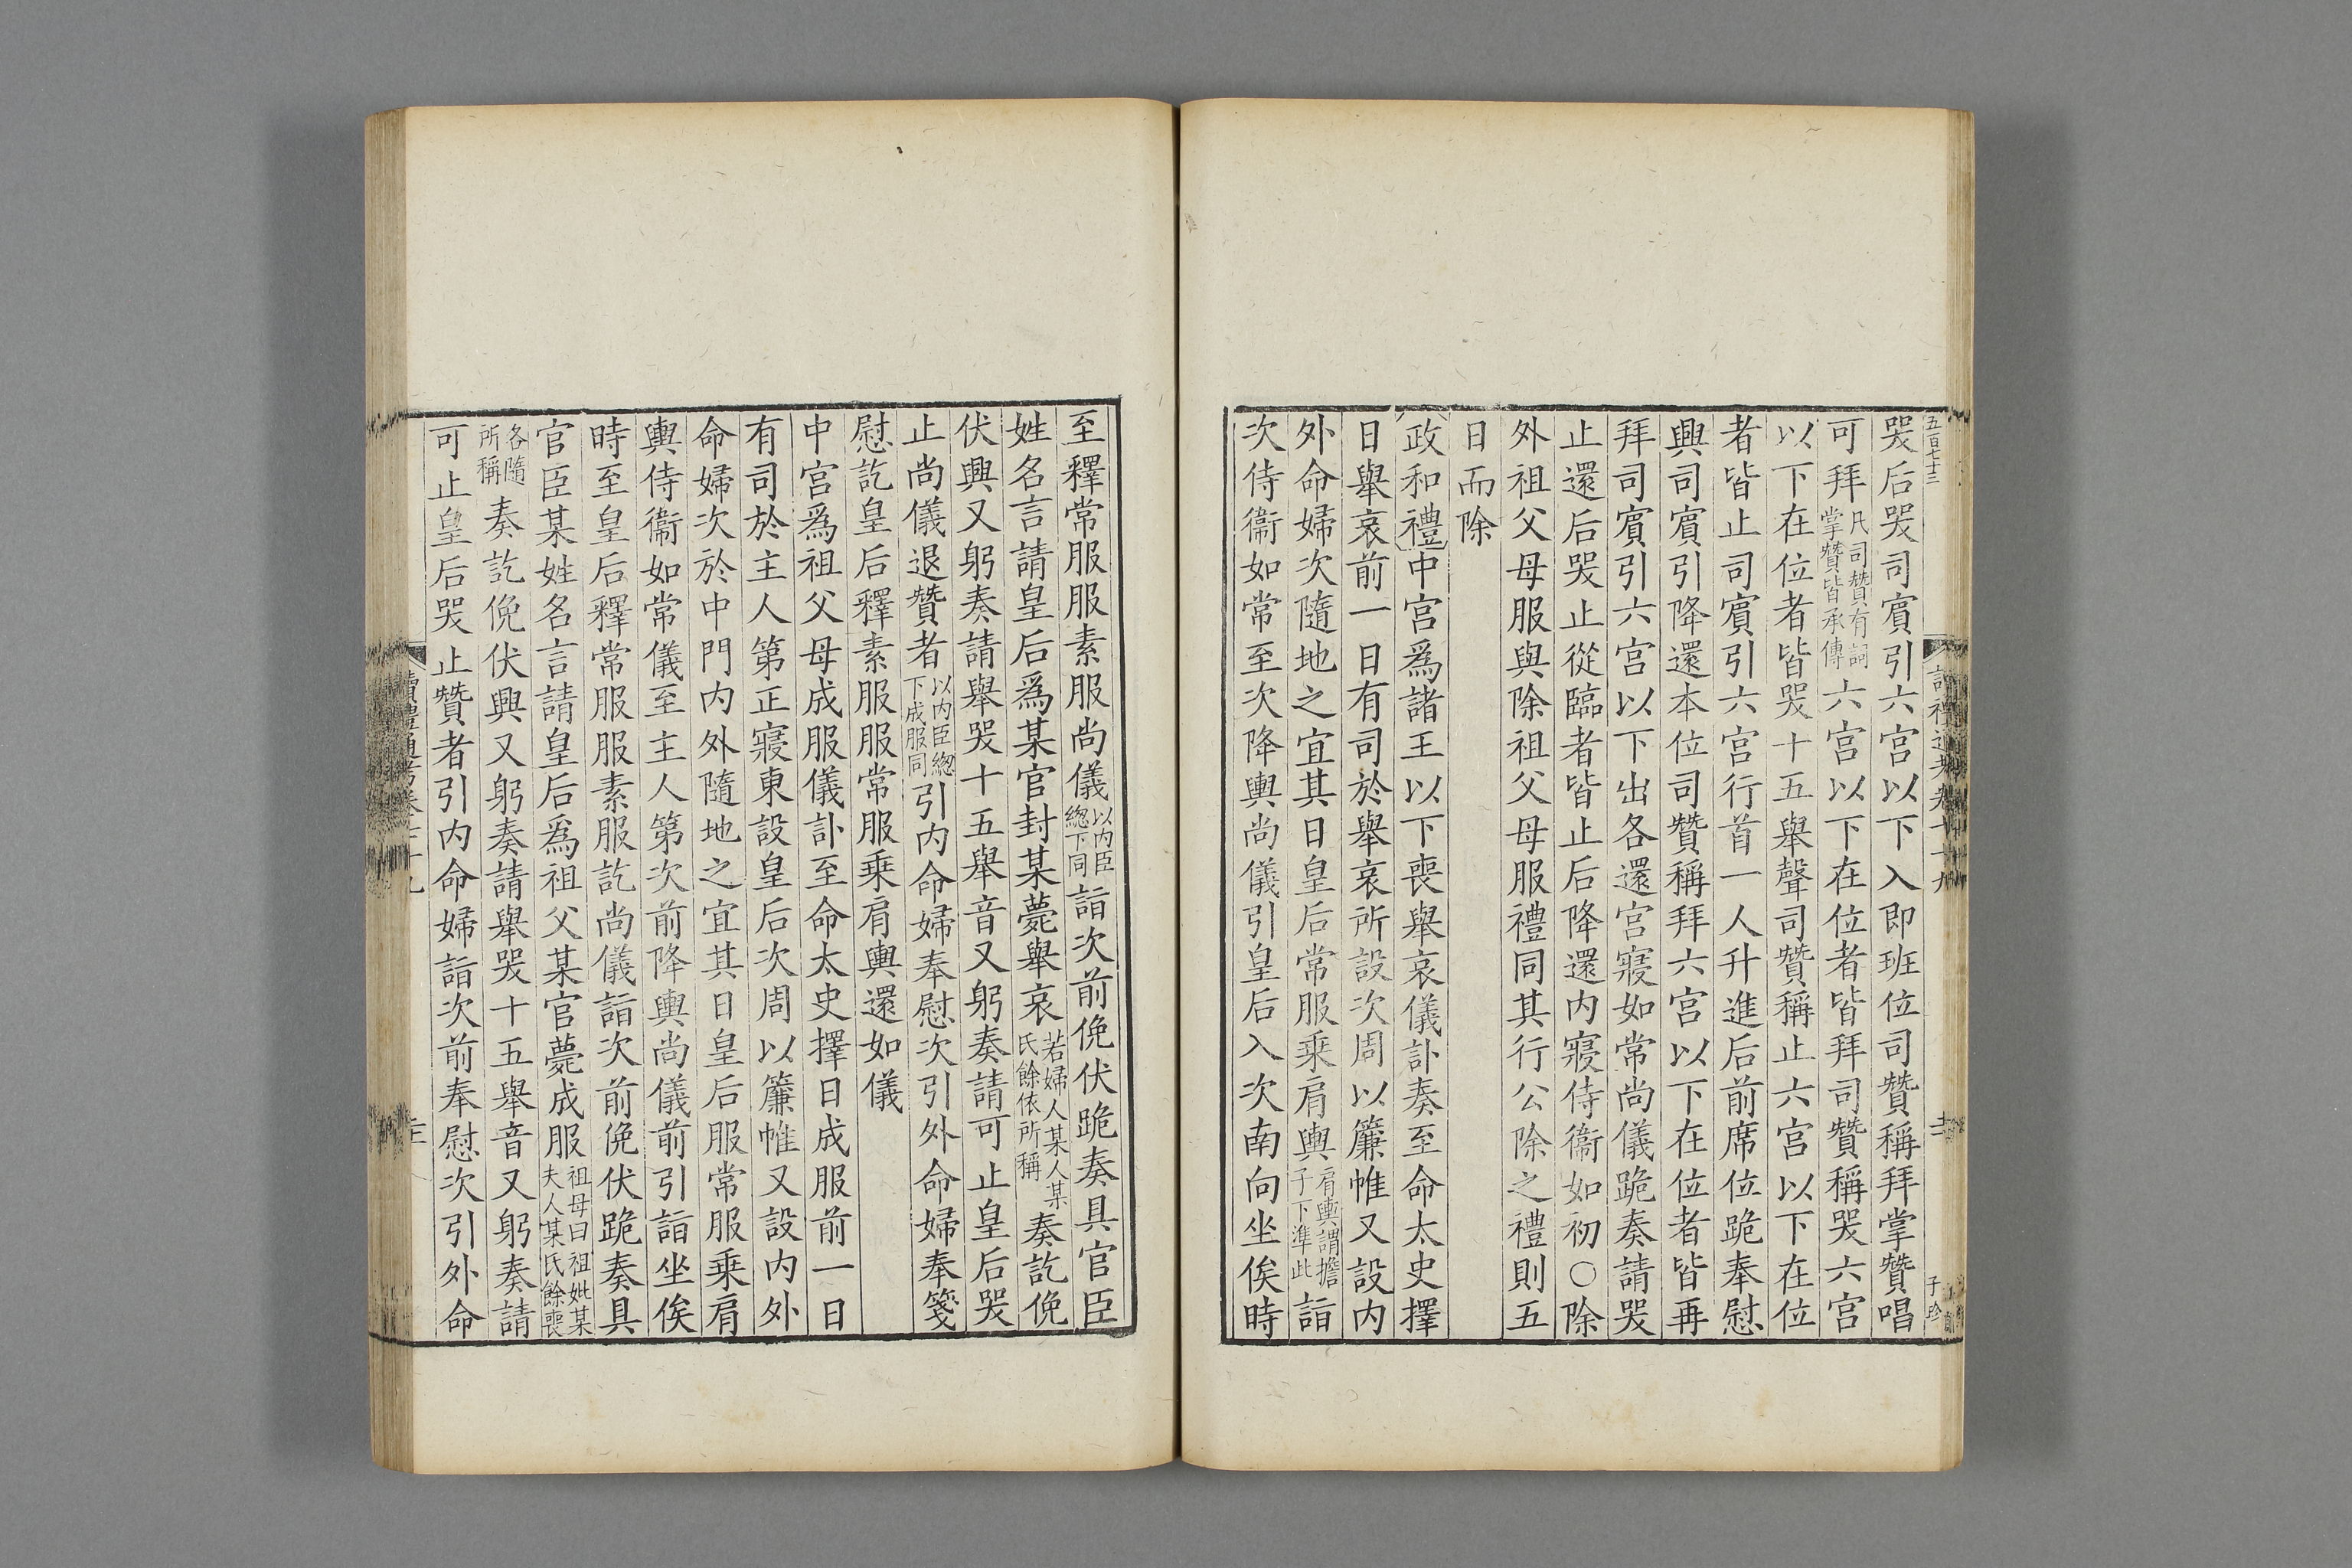 五百七十三
哭后哭司賔引六宮以下入即班位司贊稱拜掌贊唱
可拜凡司贊有詞掌贊皆承傳六宮以下在位者皆拜司贊稱哭六宮
以下在位者皆哭十五舉聲司贊稱止六宮以下在位
者皆止司賔引六宮行首一人升進后前席位跪奉慰
興司賔引降還本位司贊稱拜六宮以下在位者皆再
拜司賔引六宮以下出各還宮寢如常尚儀跪奏請哭
止還后哭止從臨者皆止后降還内寢侍衞如初○除
外祖父母服與除祖父母服禮同其行公除之禮則五
日而除
政和禮中宮爲諸王以下喪舉哀儀訃奏至命太史擇
日舉哀前一日有司於舉哀所設次周以簾帷又設内
外命婦次隨地之宜其日皇后常服乗肩輿肩輿謂擔子下準此詣
次侍衞如常至次降輿尚儀引皇后入次南向坐俟時
子珍
至釋常服服素服尚儀以内臣總下同詣次前俛伏跪奏具官臣
姓名言請皇后爲某官封某薨舉哀若婦人某人某氏餘依所稱奏訖俛
伏興又躬奏請舉哭十五舉音又躬奏請可止皇后哭
止尚儀退贊者以内臣總下成服同引内命婦奉慰次引外命婦奉箋
慰訖皇后釋素服服常服乗肩輿還如儀
中宮爲祖父母成服儀訃至命太史擇日成服前一日
有司於主人第正寢東設皇后次周以簾帷又設内外
命婦次於中門内外隨地之宜其日皇后服常服乗肩
輿侍衞如常儀至主人第次前降輿尚儀前引詣坐俟
時至皇后釋常服服素服訖尚儀詣次前俛伏跪奏具
官臣某姓名言請皇后爲祖父某官薨成服祖母曰祖妣某夫人某氏餘喪
各隨所稱奏訖俛伏興又躬奏請舉哭十五舉音又躬奏請
可止皇后哭止贊者引内命婦詣次前奉慰次引外命